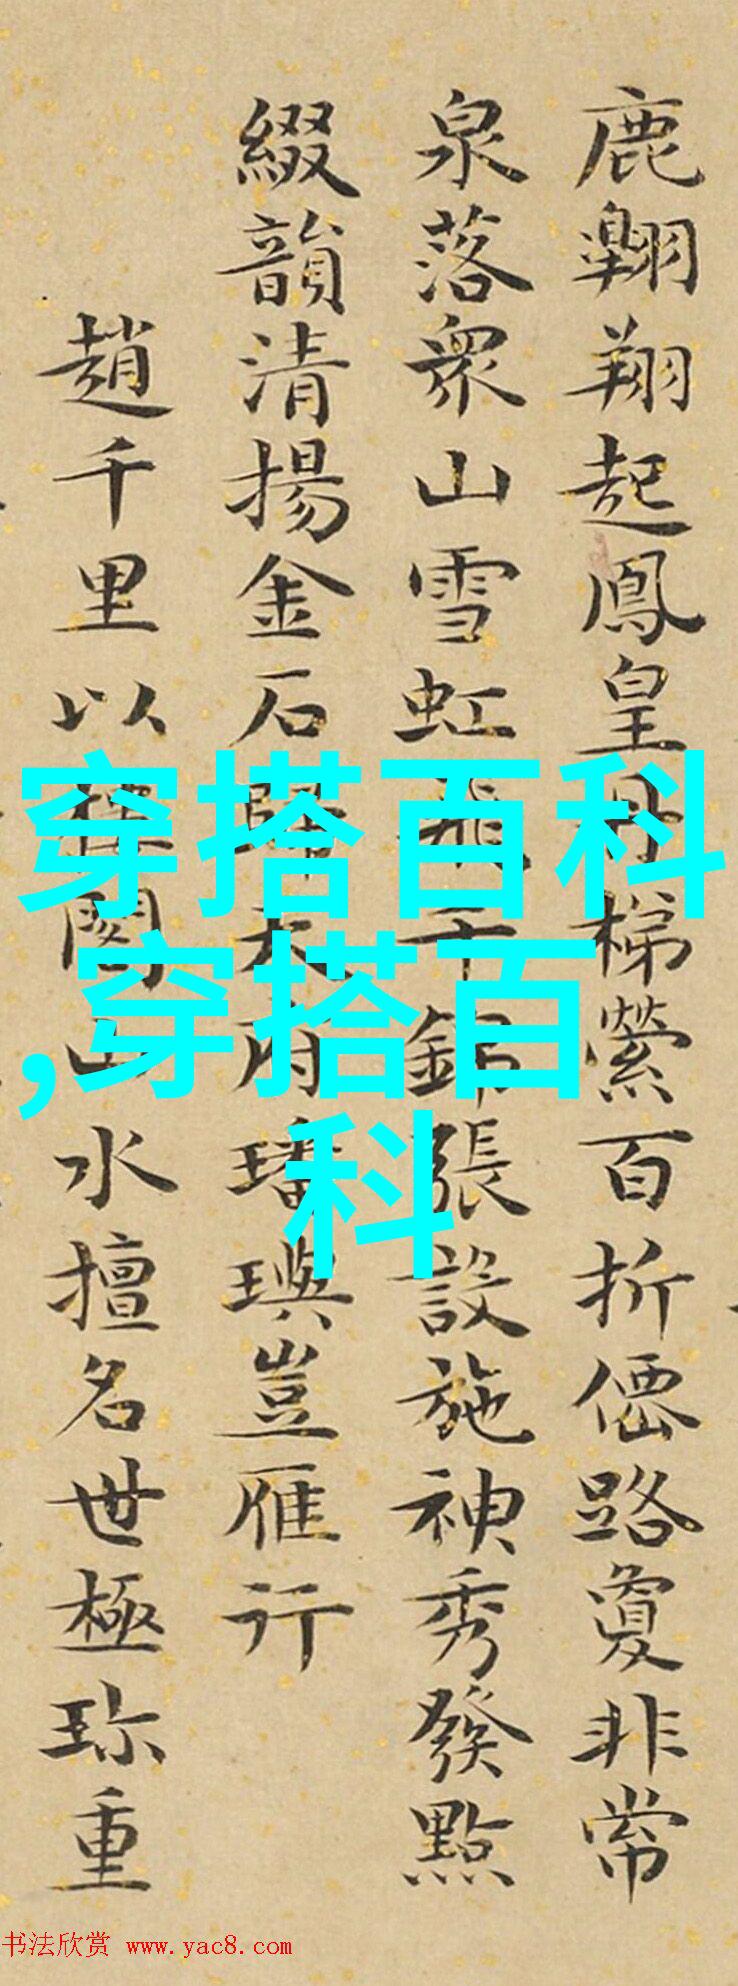 鹿翺翔起鳳皇丹梯縈百折僊路敻非常
泉落衆山雪虹飛千錦張設施神秀發點
綴韻清揚金石歸府璠璵豈雁行
趙千里以樓閣山水擅名世極珍重
穿搭百科
,穿搭百
科
书法欣赏 www.yac8.com